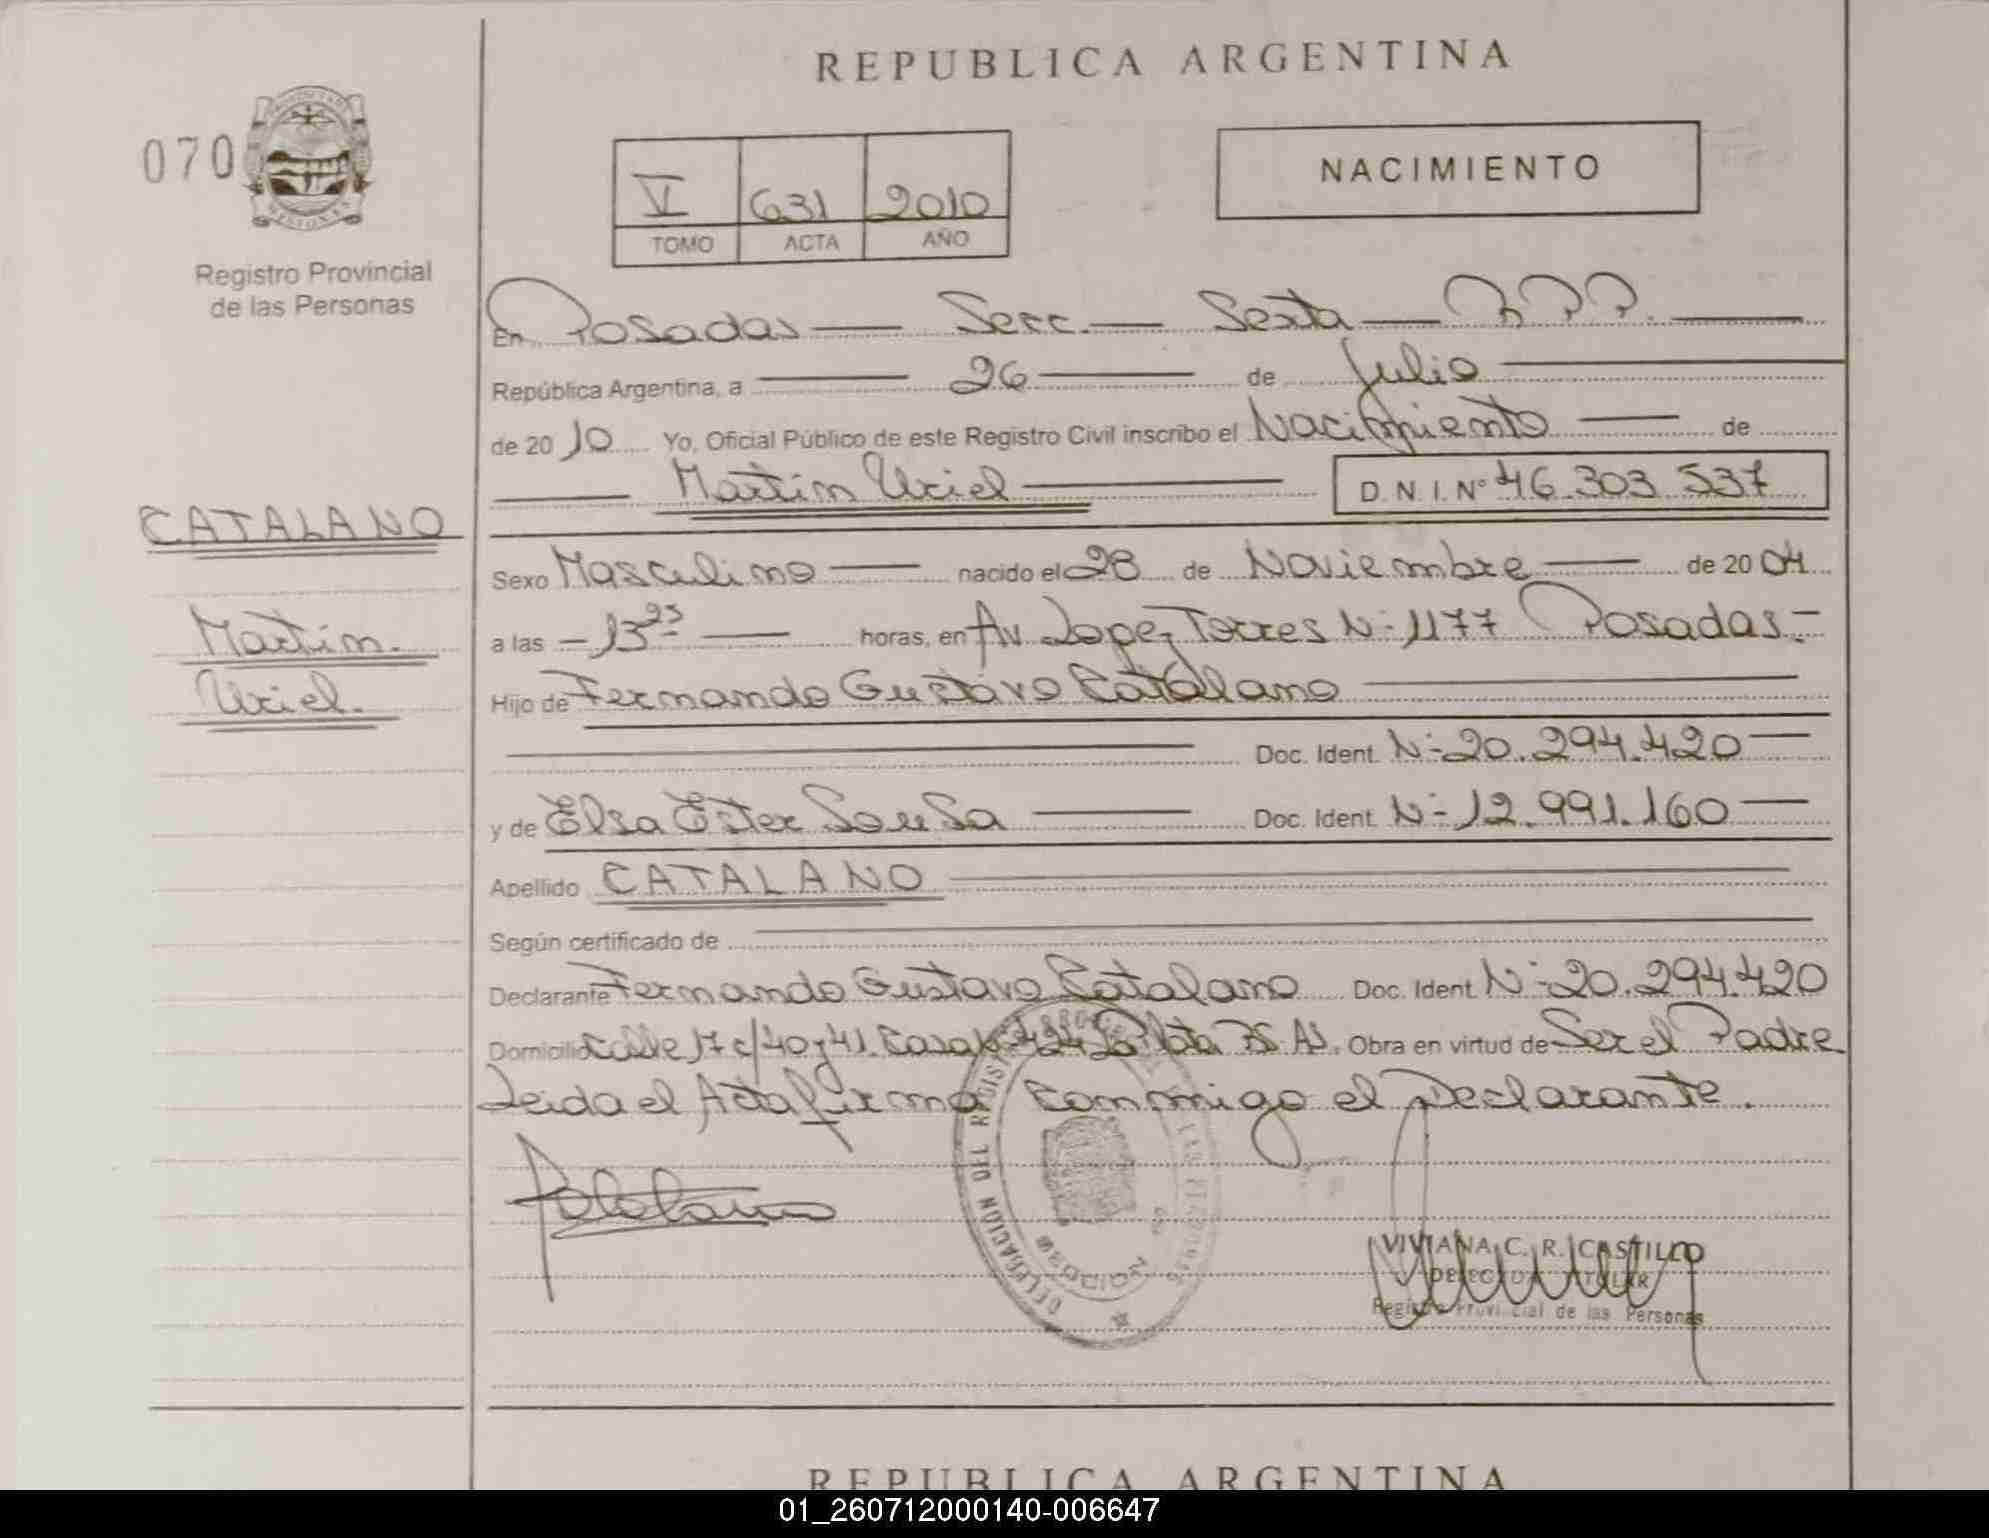 REPUBLICA ARGENTINA
070
NACIMIENTO
V 631 2010
TOMO ACTA AÑO
Registro Provincial
de las Personas
En Posadas — Secc. — Sexta — R.P.P. —
República Argentina, a — 26 — de Julio —
de 2010 Yo, Oficial Público de este Registro Civil inscribo el Nacimiento — de
— Martin Uriel — D.N.I. Nº 46.303.537
CATALANO
Martin.
Uriel.
Sexo Masculino — nacido el 28 de Noviembre — de 2004
a las – 13 25 — horas, en Av. Lopez Torres Nº 1177 Posadas.-
Hijo de Fernando Gustavo Catalano —
— Doc. Ident. Nº 20.294.420 —
y de Elsa Ester Sousa — Doc. Ident. Nº 12.991.160 —
Apellido CATALANO —
Según certificado de —
Declarante Fernando Gustavo Catalano Doc. Ident Nº 20.294.420
Domicilio Calle 17 c/40 y 41. Casa 424 La Plata Bs As. Obra en virtud de Ser el Padre
Leida el Acta firma conmigo el Declarante.
DELEGACION DEL
VIVIANA C. R. CASTILLO
Registro Provincial de las Personas
REPUBLICA ARGENTINA
01_260712000140-006647